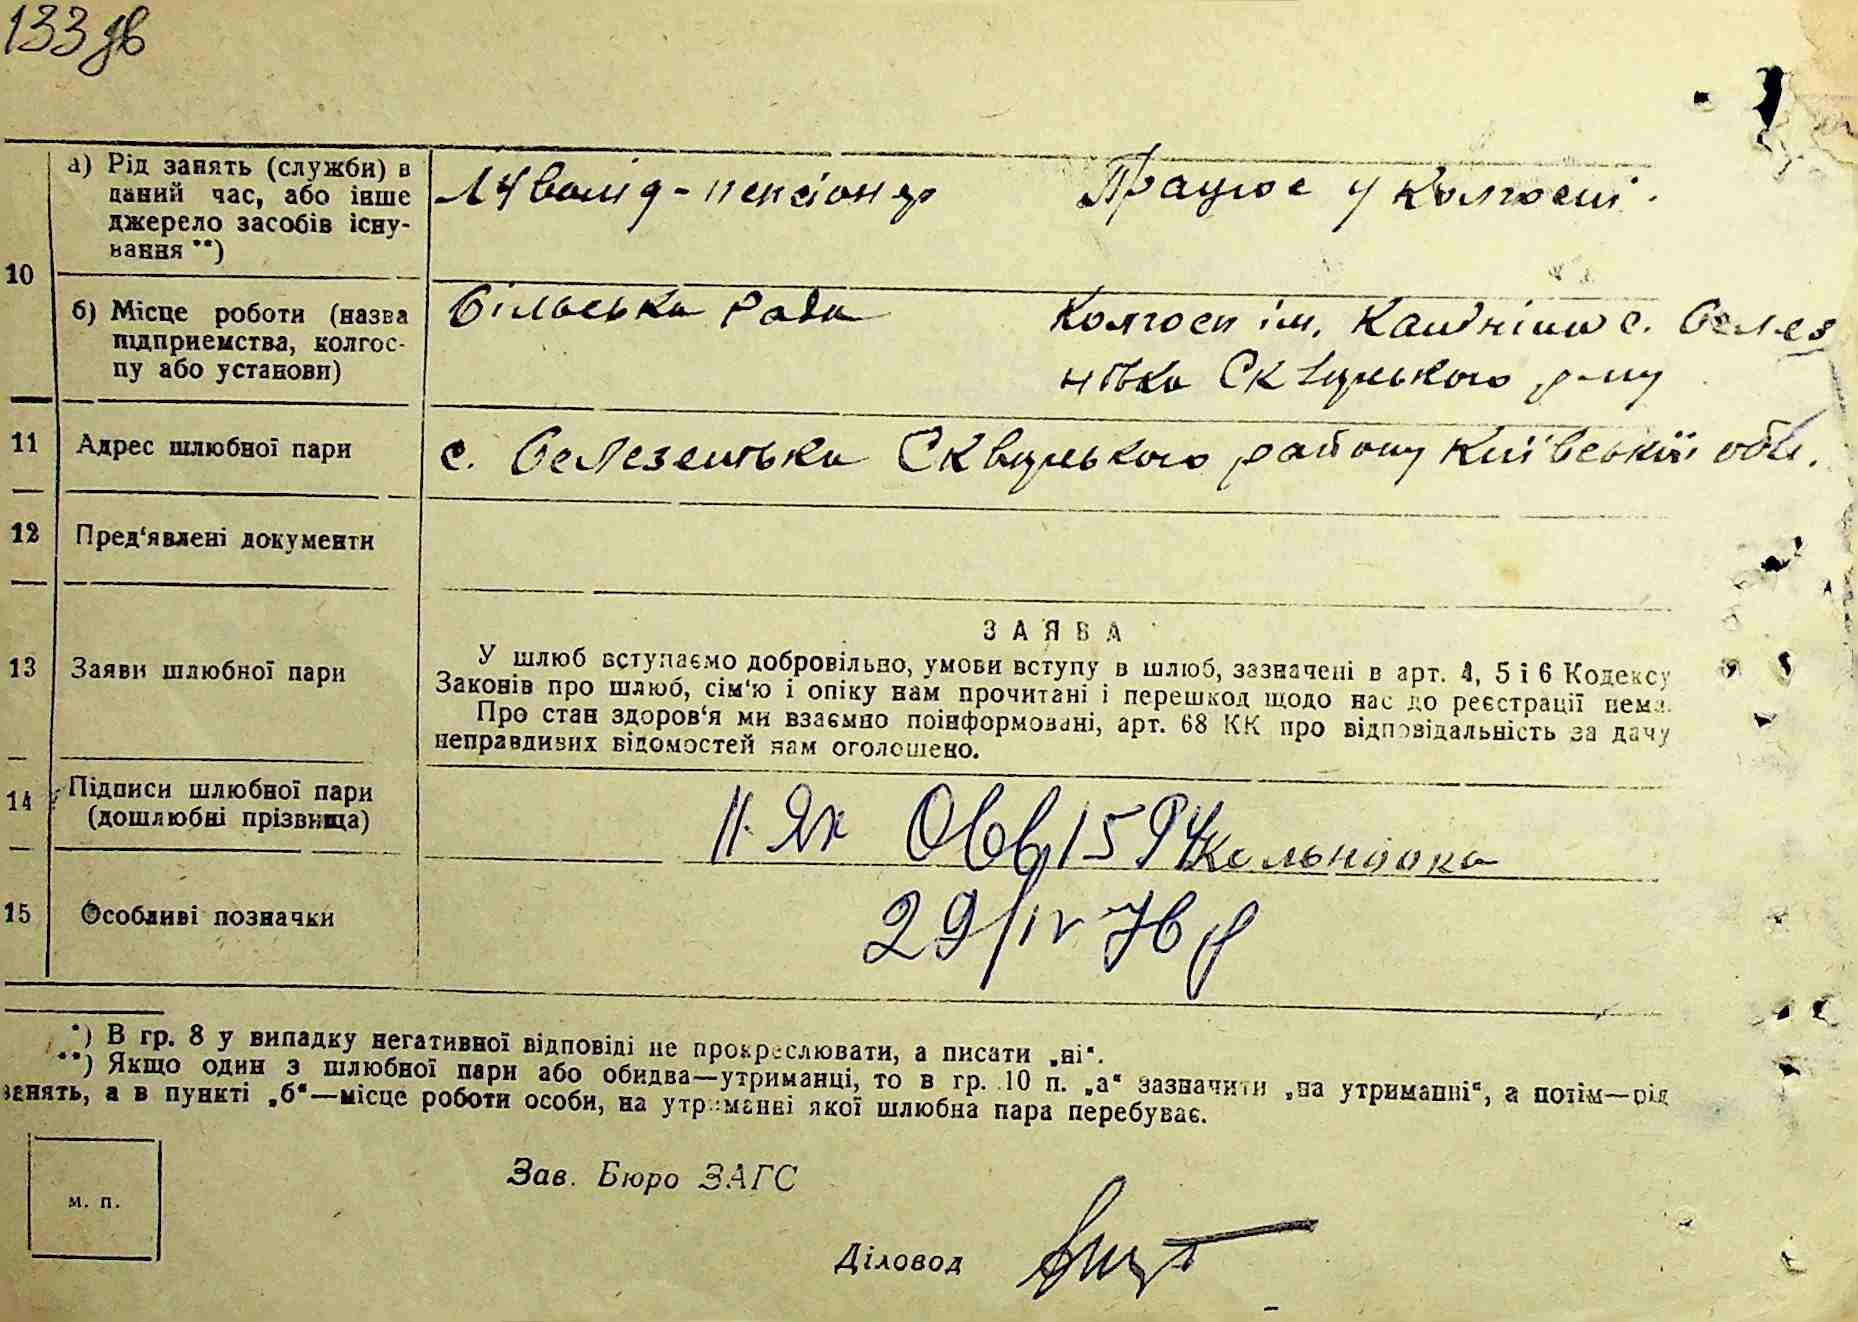 133 зв
а) Рід занять (служби) в
даний час, або інше
джерело засобів існу-
вання **)
Інвалід-пенсіонер
Працює у колгоспі.
10
б) Місце роботи (назва
підприємства, колгос-
пу або установи)
рада
Колгосп ім. с. Селез
нівка Сквирського р-ну
11 Адрес шлюбної пари
с. Селезенівка Сквирського району Київської обл.
12 Пред'явлені документи
13 Заяви шлюбної пари
ЗАЯВА
У шлюб вступаємо добровільно, умови вступу в шлюб, зазначені в арт. 4, 5 і 6 Кодексу
Законів про шлюб, сім'ю і опіку нам прочитані і перешкод щодо нас до реєстрації нема.
Про стан здоров'я ми взаємно поінформовані, арт. 68 КК про відповідальність за дачу
неправдивих відомостей нам оголошено.
14 Підписи шлюбної пари
(дошлюбні прізвища)
15 Особливі позначки
29/IV 76 р
*) В гр. 8 у випадку негативної відповіді не прокреслювати, а писати „ні“.
**) Якщо один з шлюбної пари або обидва—утриманці, то в гр. 10 п. „а“ зазначити „на утриманні“, а потім—рід
занять, а в пункті „б“—місце роботи особи, на утриманні якої шлюбна пара перебуває.
м. п.
Зав. Бюро ЗАГС
Діловод